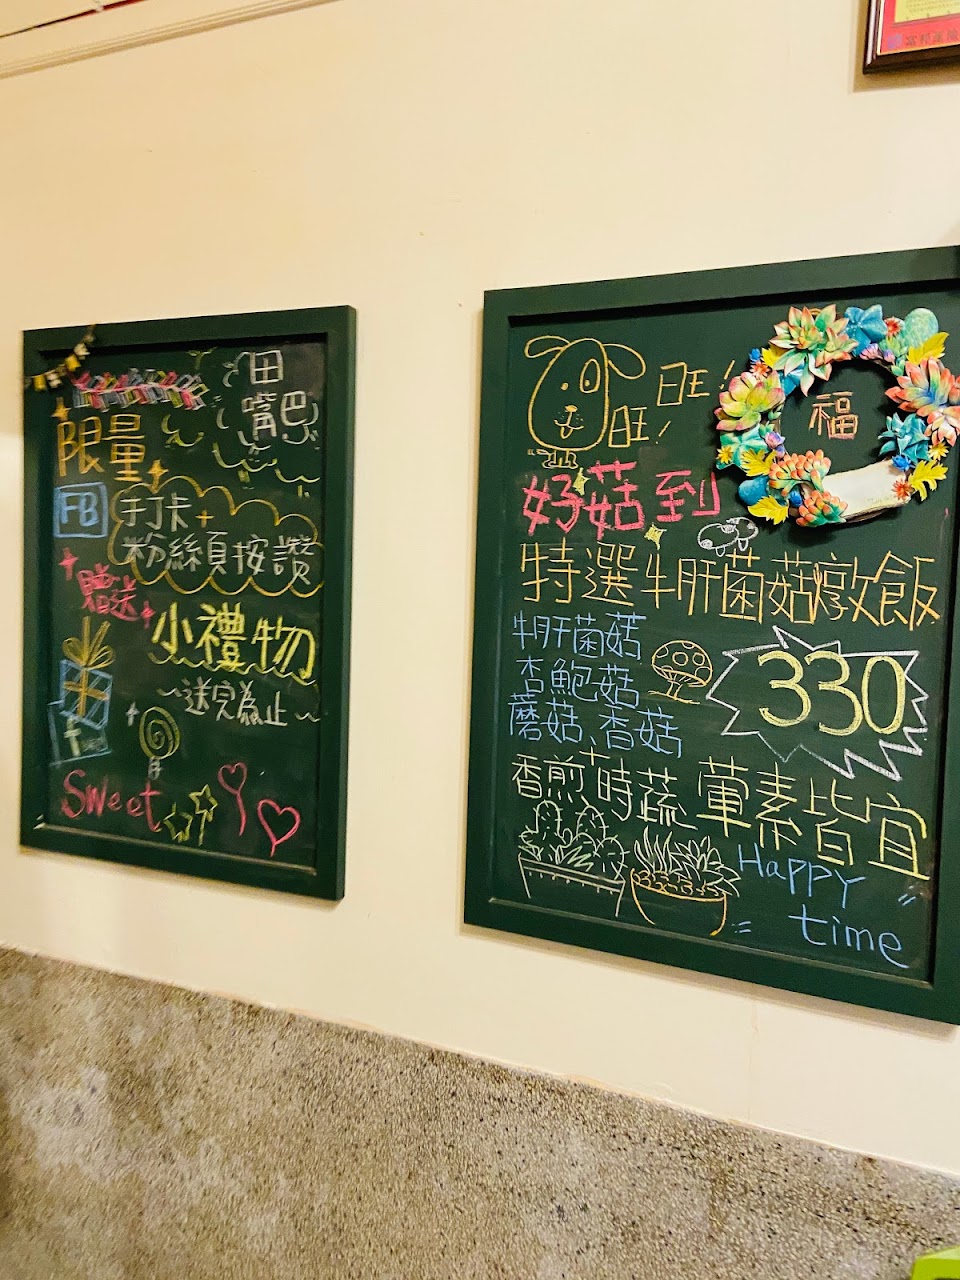 田
嘴巴
限量
FB 打卡+
粉絲頁按讚
贈送
小禮物
~送完為止~
Sweet
旺!
旺!
福
好菇到
特選牛肝菌菇燉飯
牛肝菌菇
杏鮑菇
蘑菇、香菇
330
香煎時蔬
葷素皆宜
Happy
time